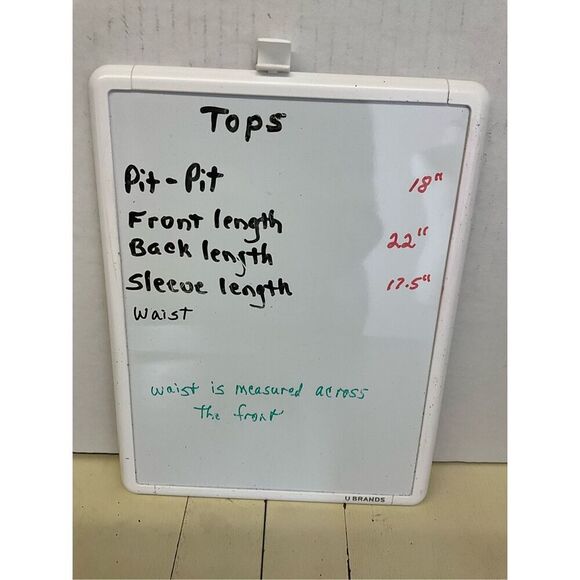 Tops
Pit-Pit 18"
Front length
Back length 22"
Sleeve length 17.5"
Waist
waist is measured across
the front
U BRANDS